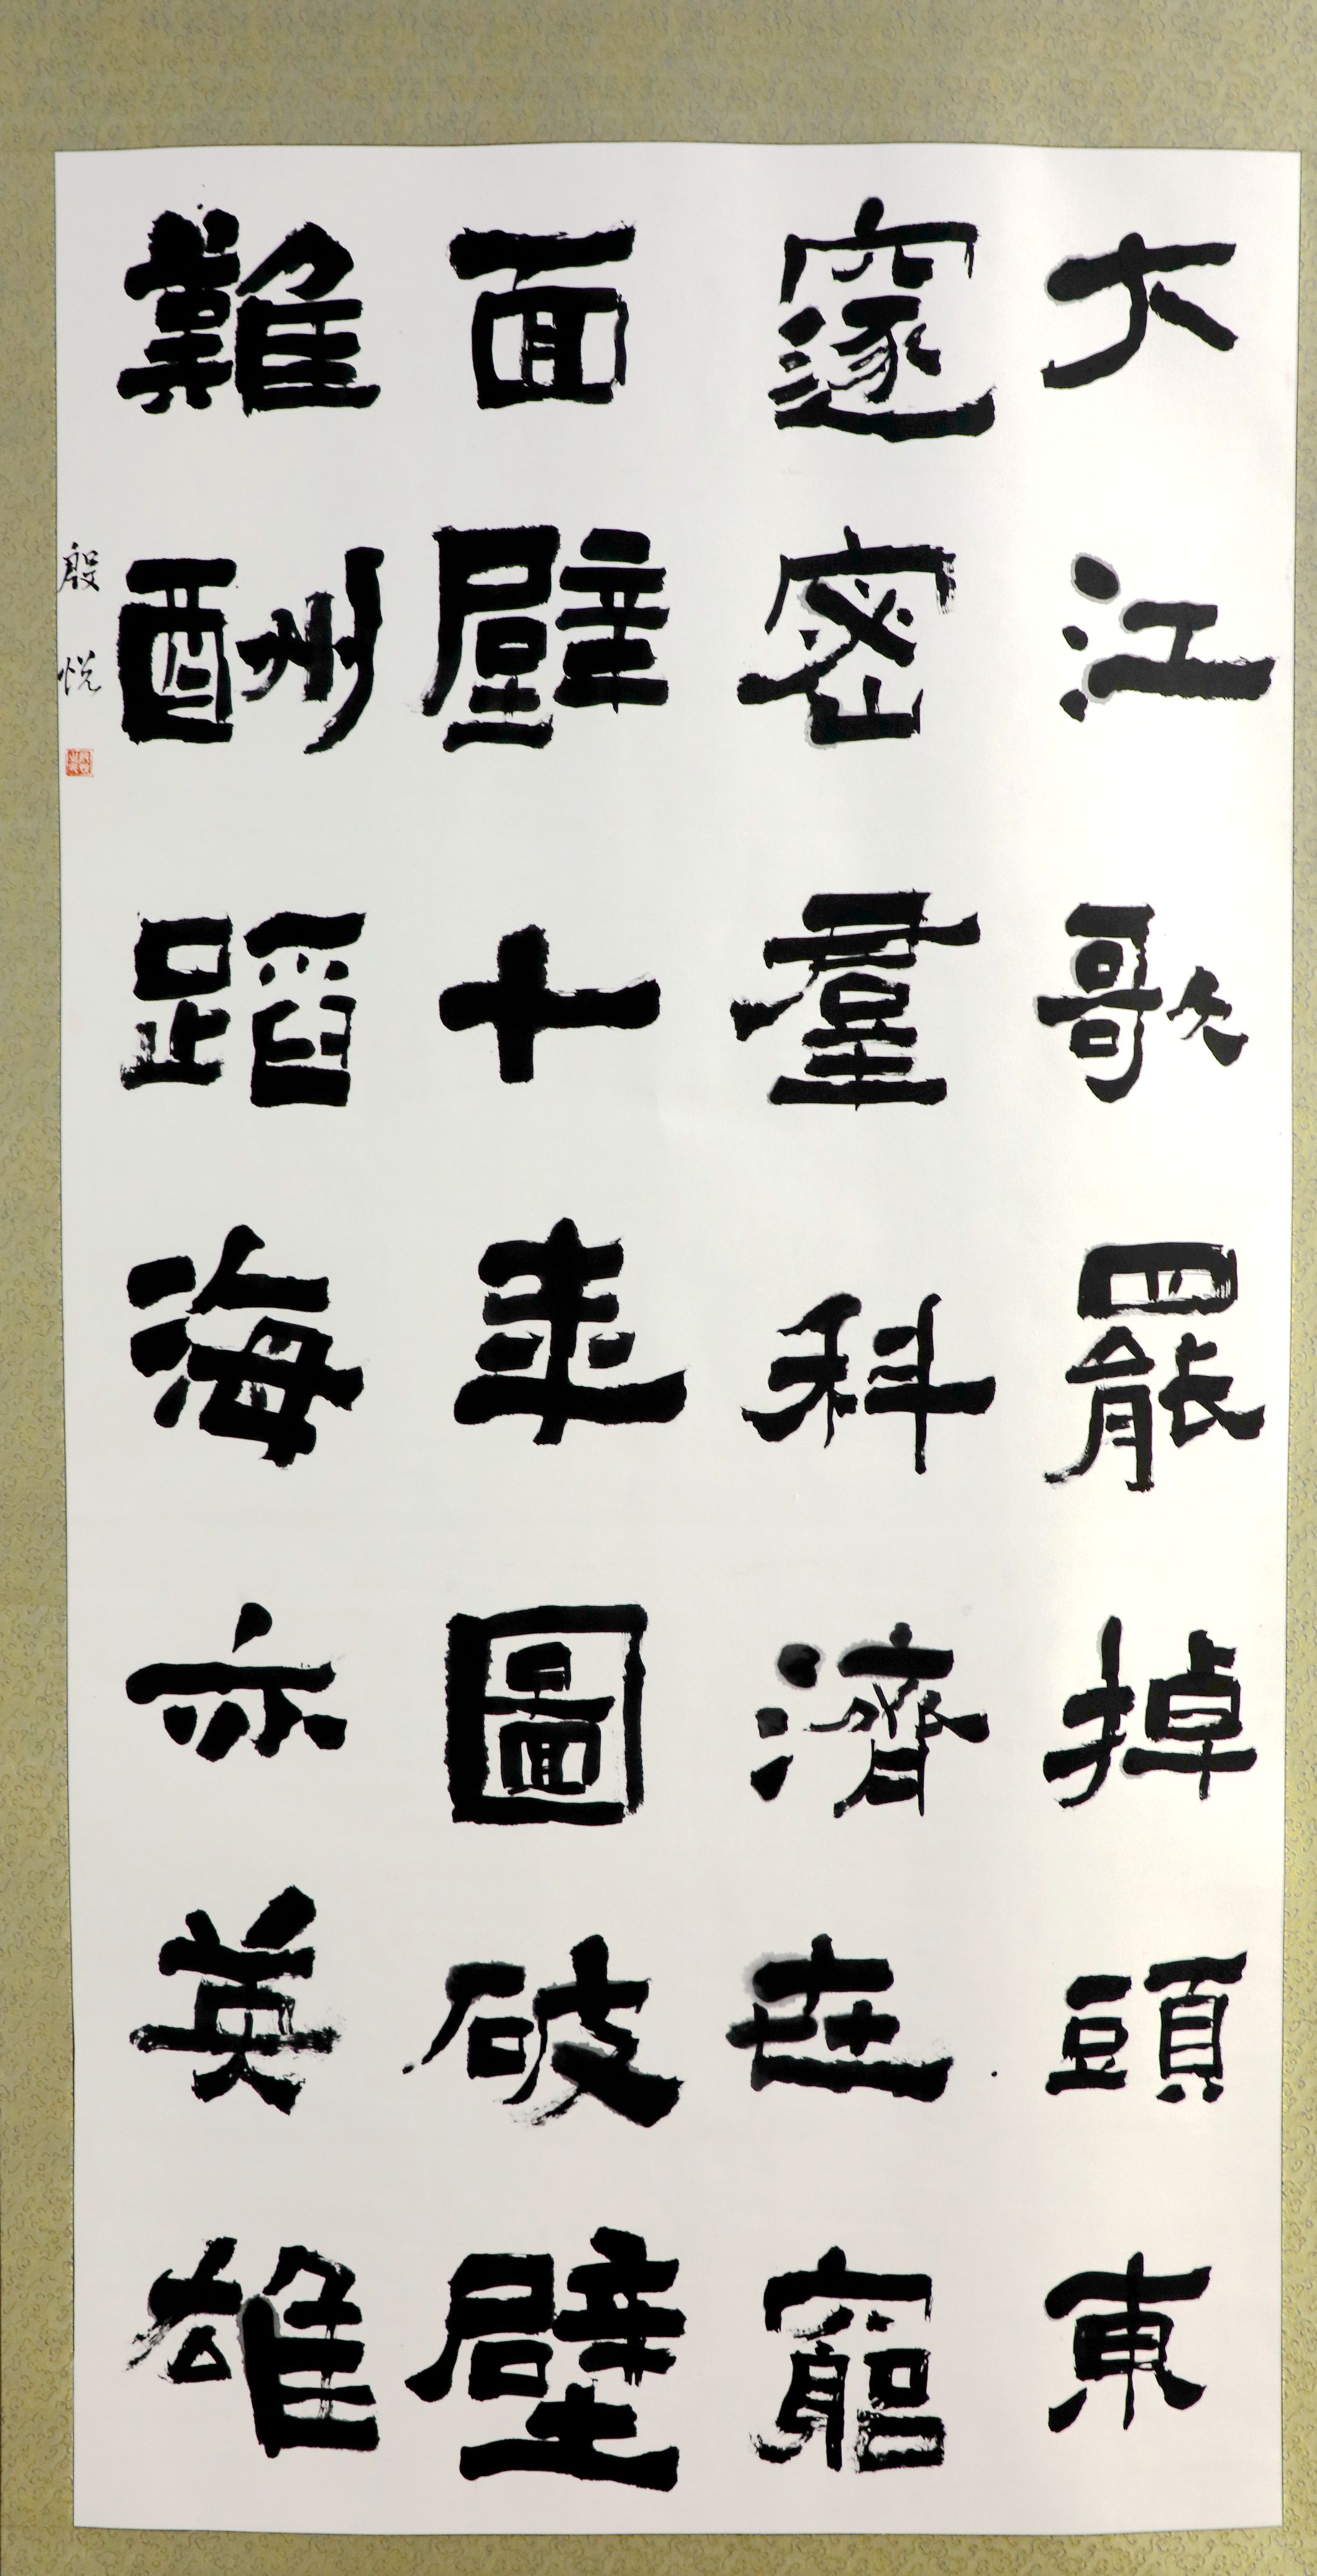 大江歌罷掉頭東
邃密羣科濟世窮
面壁十年圖破壁
難酬蹈海亦英雄
殷悦